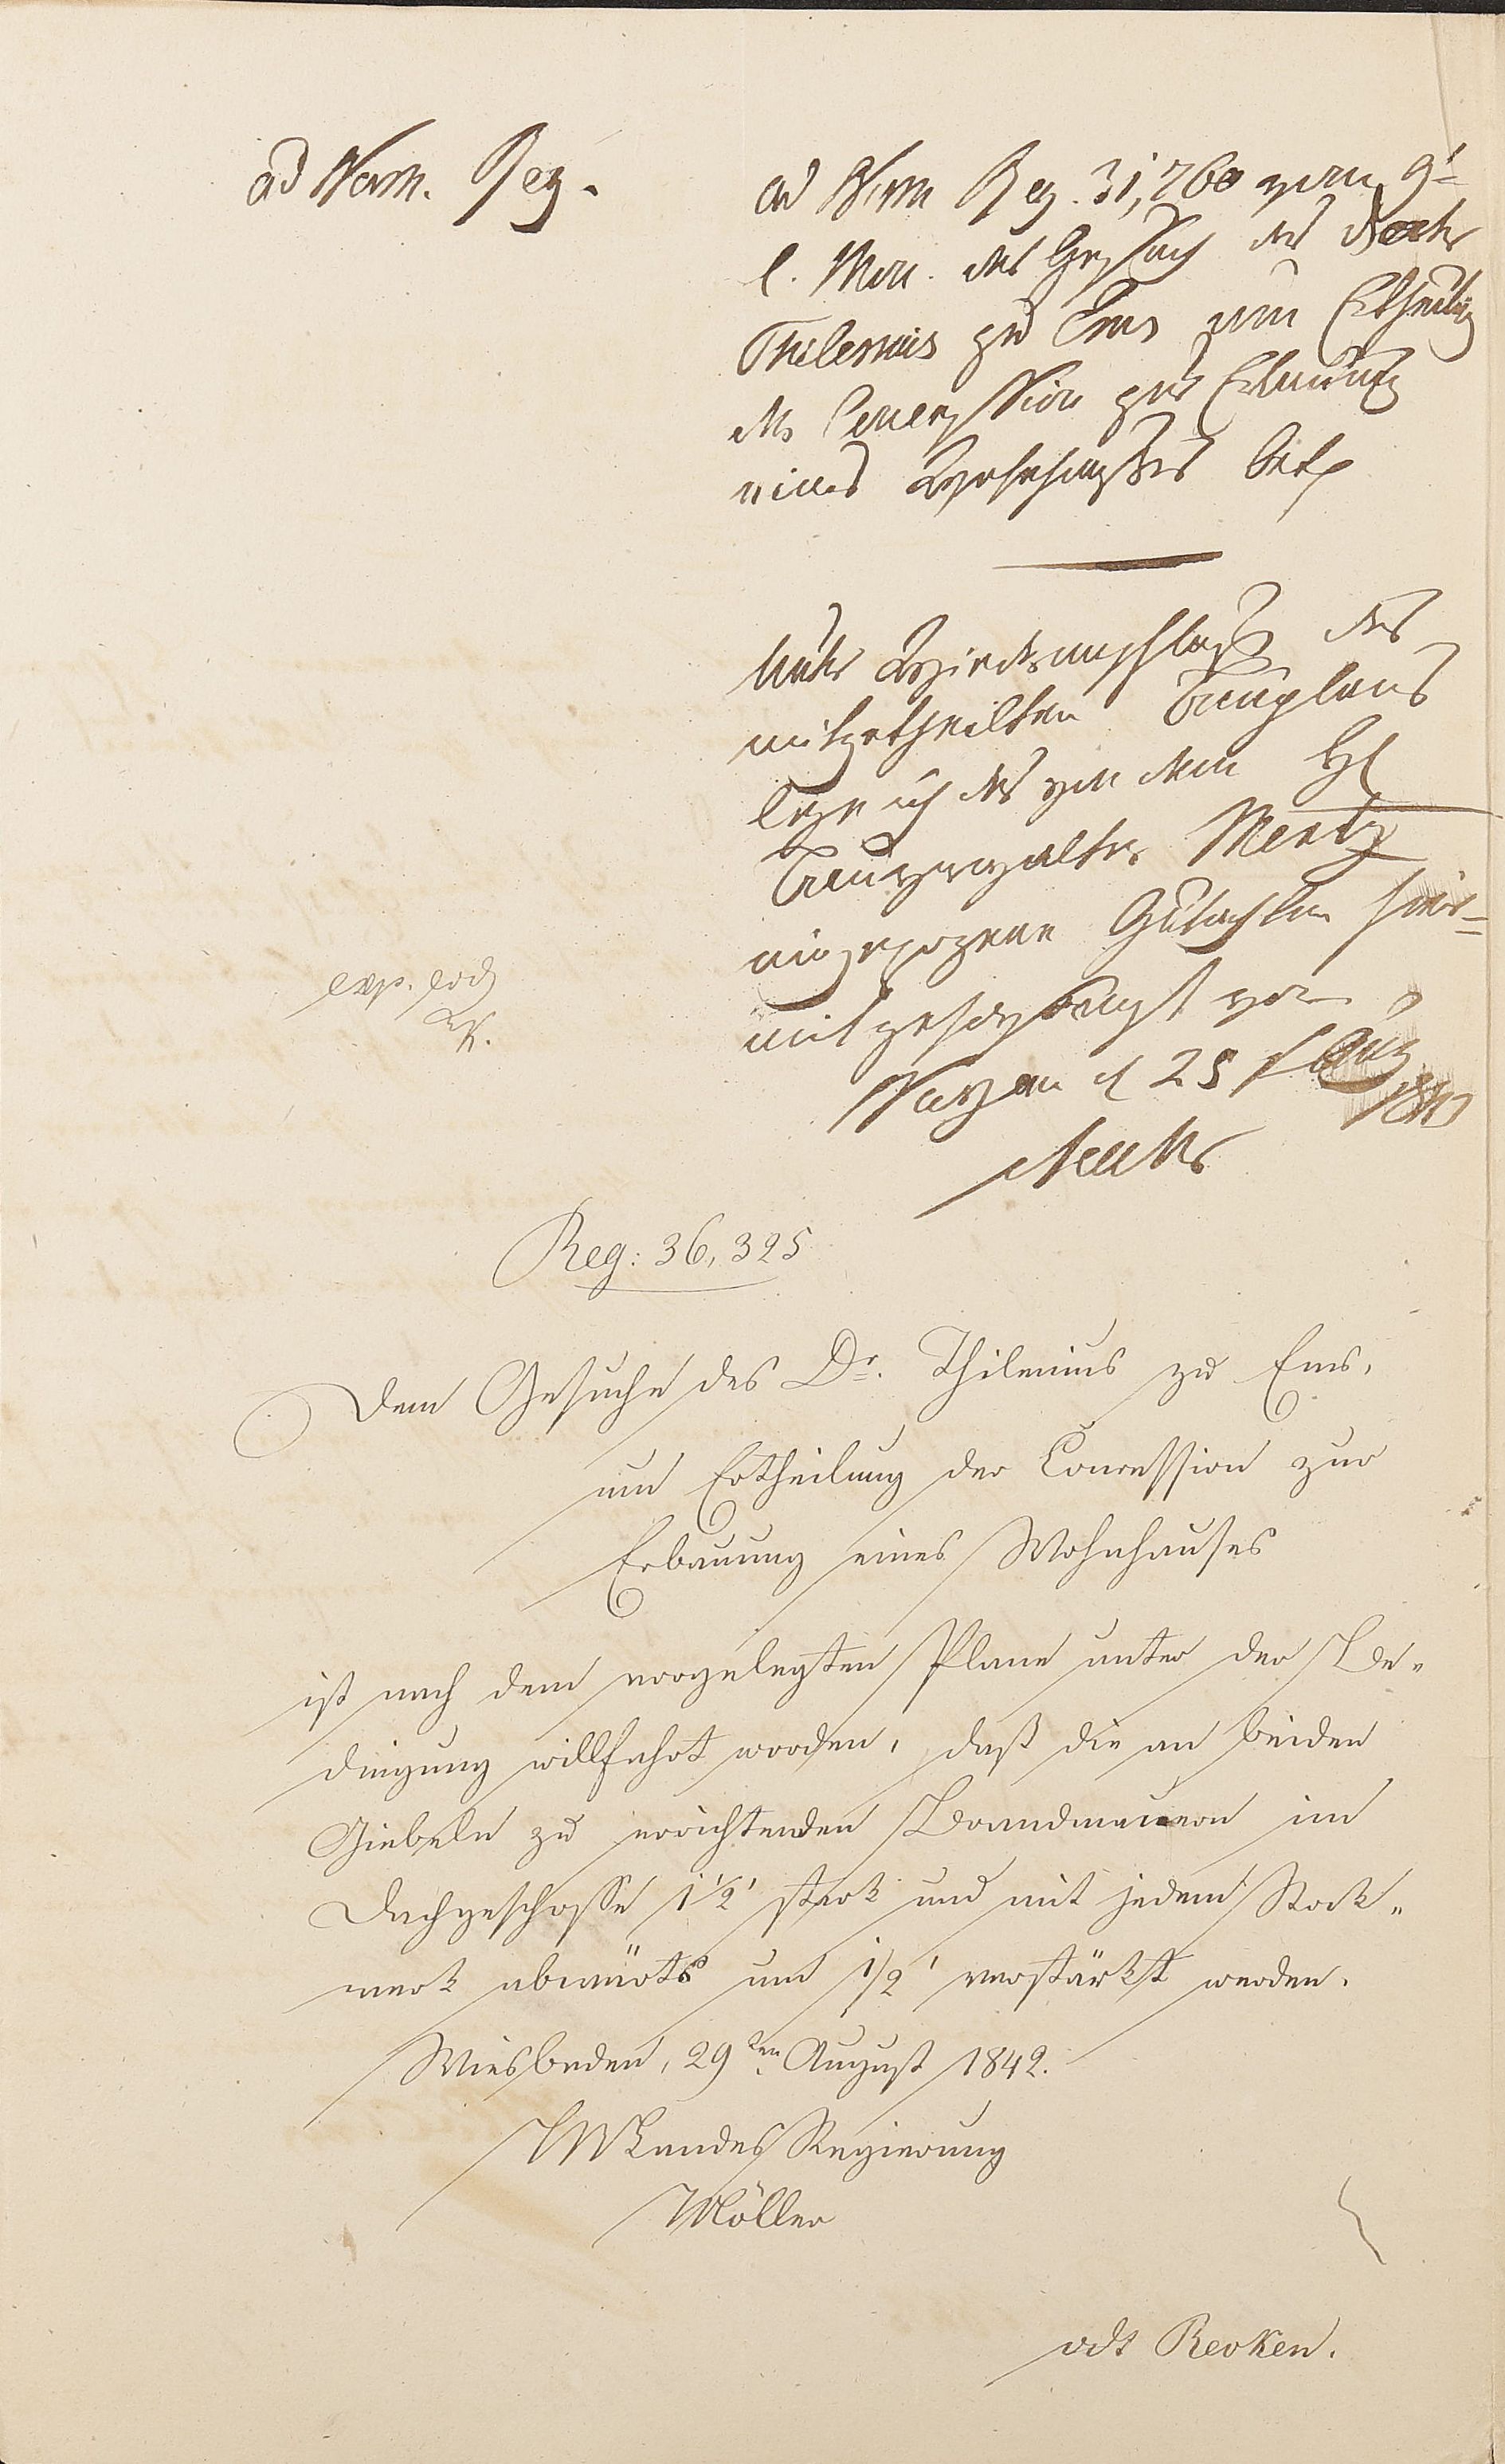 ad Num. Reg.
ad Num Reg. 31,760 vom 9t
l. Mon. das Gesuch des Doctr
Thilenius zu Ems um Ertheilung
der Concession zur Erbauung
eines Wohnhauses betr
Unter Wiederanschluß des
mitgetheilten Bauplans
lege ich das von dem H
Bauverwalter Mertz
eingezogene Gutachten hier=
mit gehorsamst vor
Nassau d 25 Aug
1842
exp. eod
Reg: 36,325
Dem Gesuche des Dr. Thilenius zu Ems,
um Ertheilung der Concession zur
Erbauung eines Wohnhauses
ist nach dem vorgelegten Plane unter der Be„
dingung willfahrt worden, daß die an beiden
Giebeln zu errichtenden Brandmauern im
Dachgeschosse 1½' stark und mit jedem Stock„
werk abwärts um ½' verstärkt werden.
Wiesbaden, 29ten August 1842.
HN Landes Regierung
Möller
vdt Reoken.